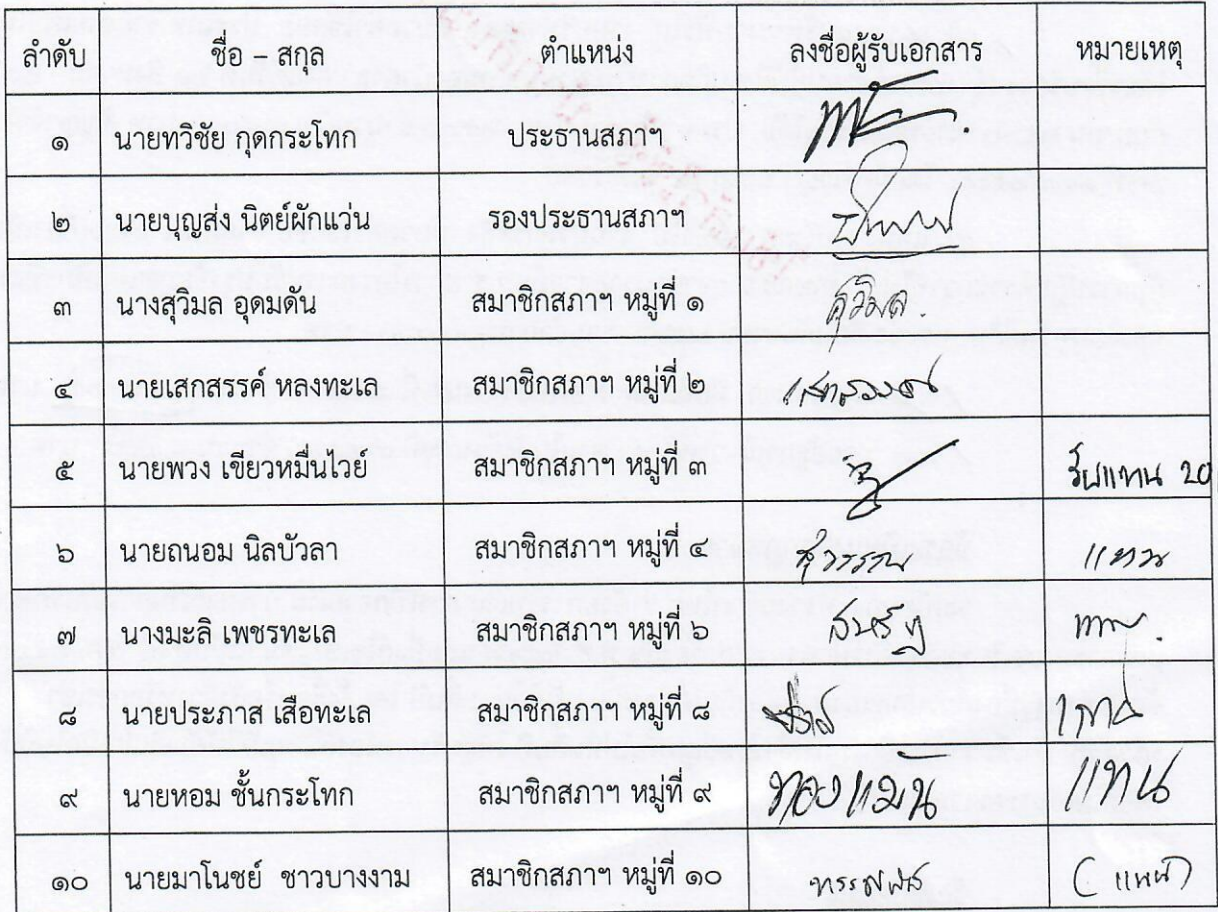 ลำดับ ชื่อ – สกุล ตำแหน่ง ลงชื่อผู้รับเอกสาร หมายเหตุ
๑ นายทวิชัย กุดกระโทก ประธานสภาฯ
๒ นายบุญส่ง นิตย์ผักแว่น รองประธานสภาฯ
๓ นางสุวิมล อุดมดัน สมาชิกสภาฯ หมู่ที่ ๑ สุวิมล.
๔ นายเสกสรรค์ หลงทะเล สมาชิกสภาฯ หมู่ที่ ๒
๕ นายพวง เขียวหมื่นไวย์ สมาชิกสภาฯ หมู่ที่ ๓ รับแทน 20
๖ นายถนอม นิลบัวลา สมาชิกสภาฯ หมู่ที่ ๔ แทน
๗ นางมะลิ เพชรทะเล สมาชิกสภาฯ หมู่ที่ ๖
๘ นายประภาส เสือทะเล สมาชิกสภาฯ หมู่ที่ ๘
๙ นายหอม ชั้นกระโทก สมาชิกสภาฯ หมู่ที่ ๙ ทองแม้น แทน
๑๐ นายมาโนชย์ ชาวบางงาม สมาชิกสภาฯ หมู่ที่ ๑๐ (แทน)